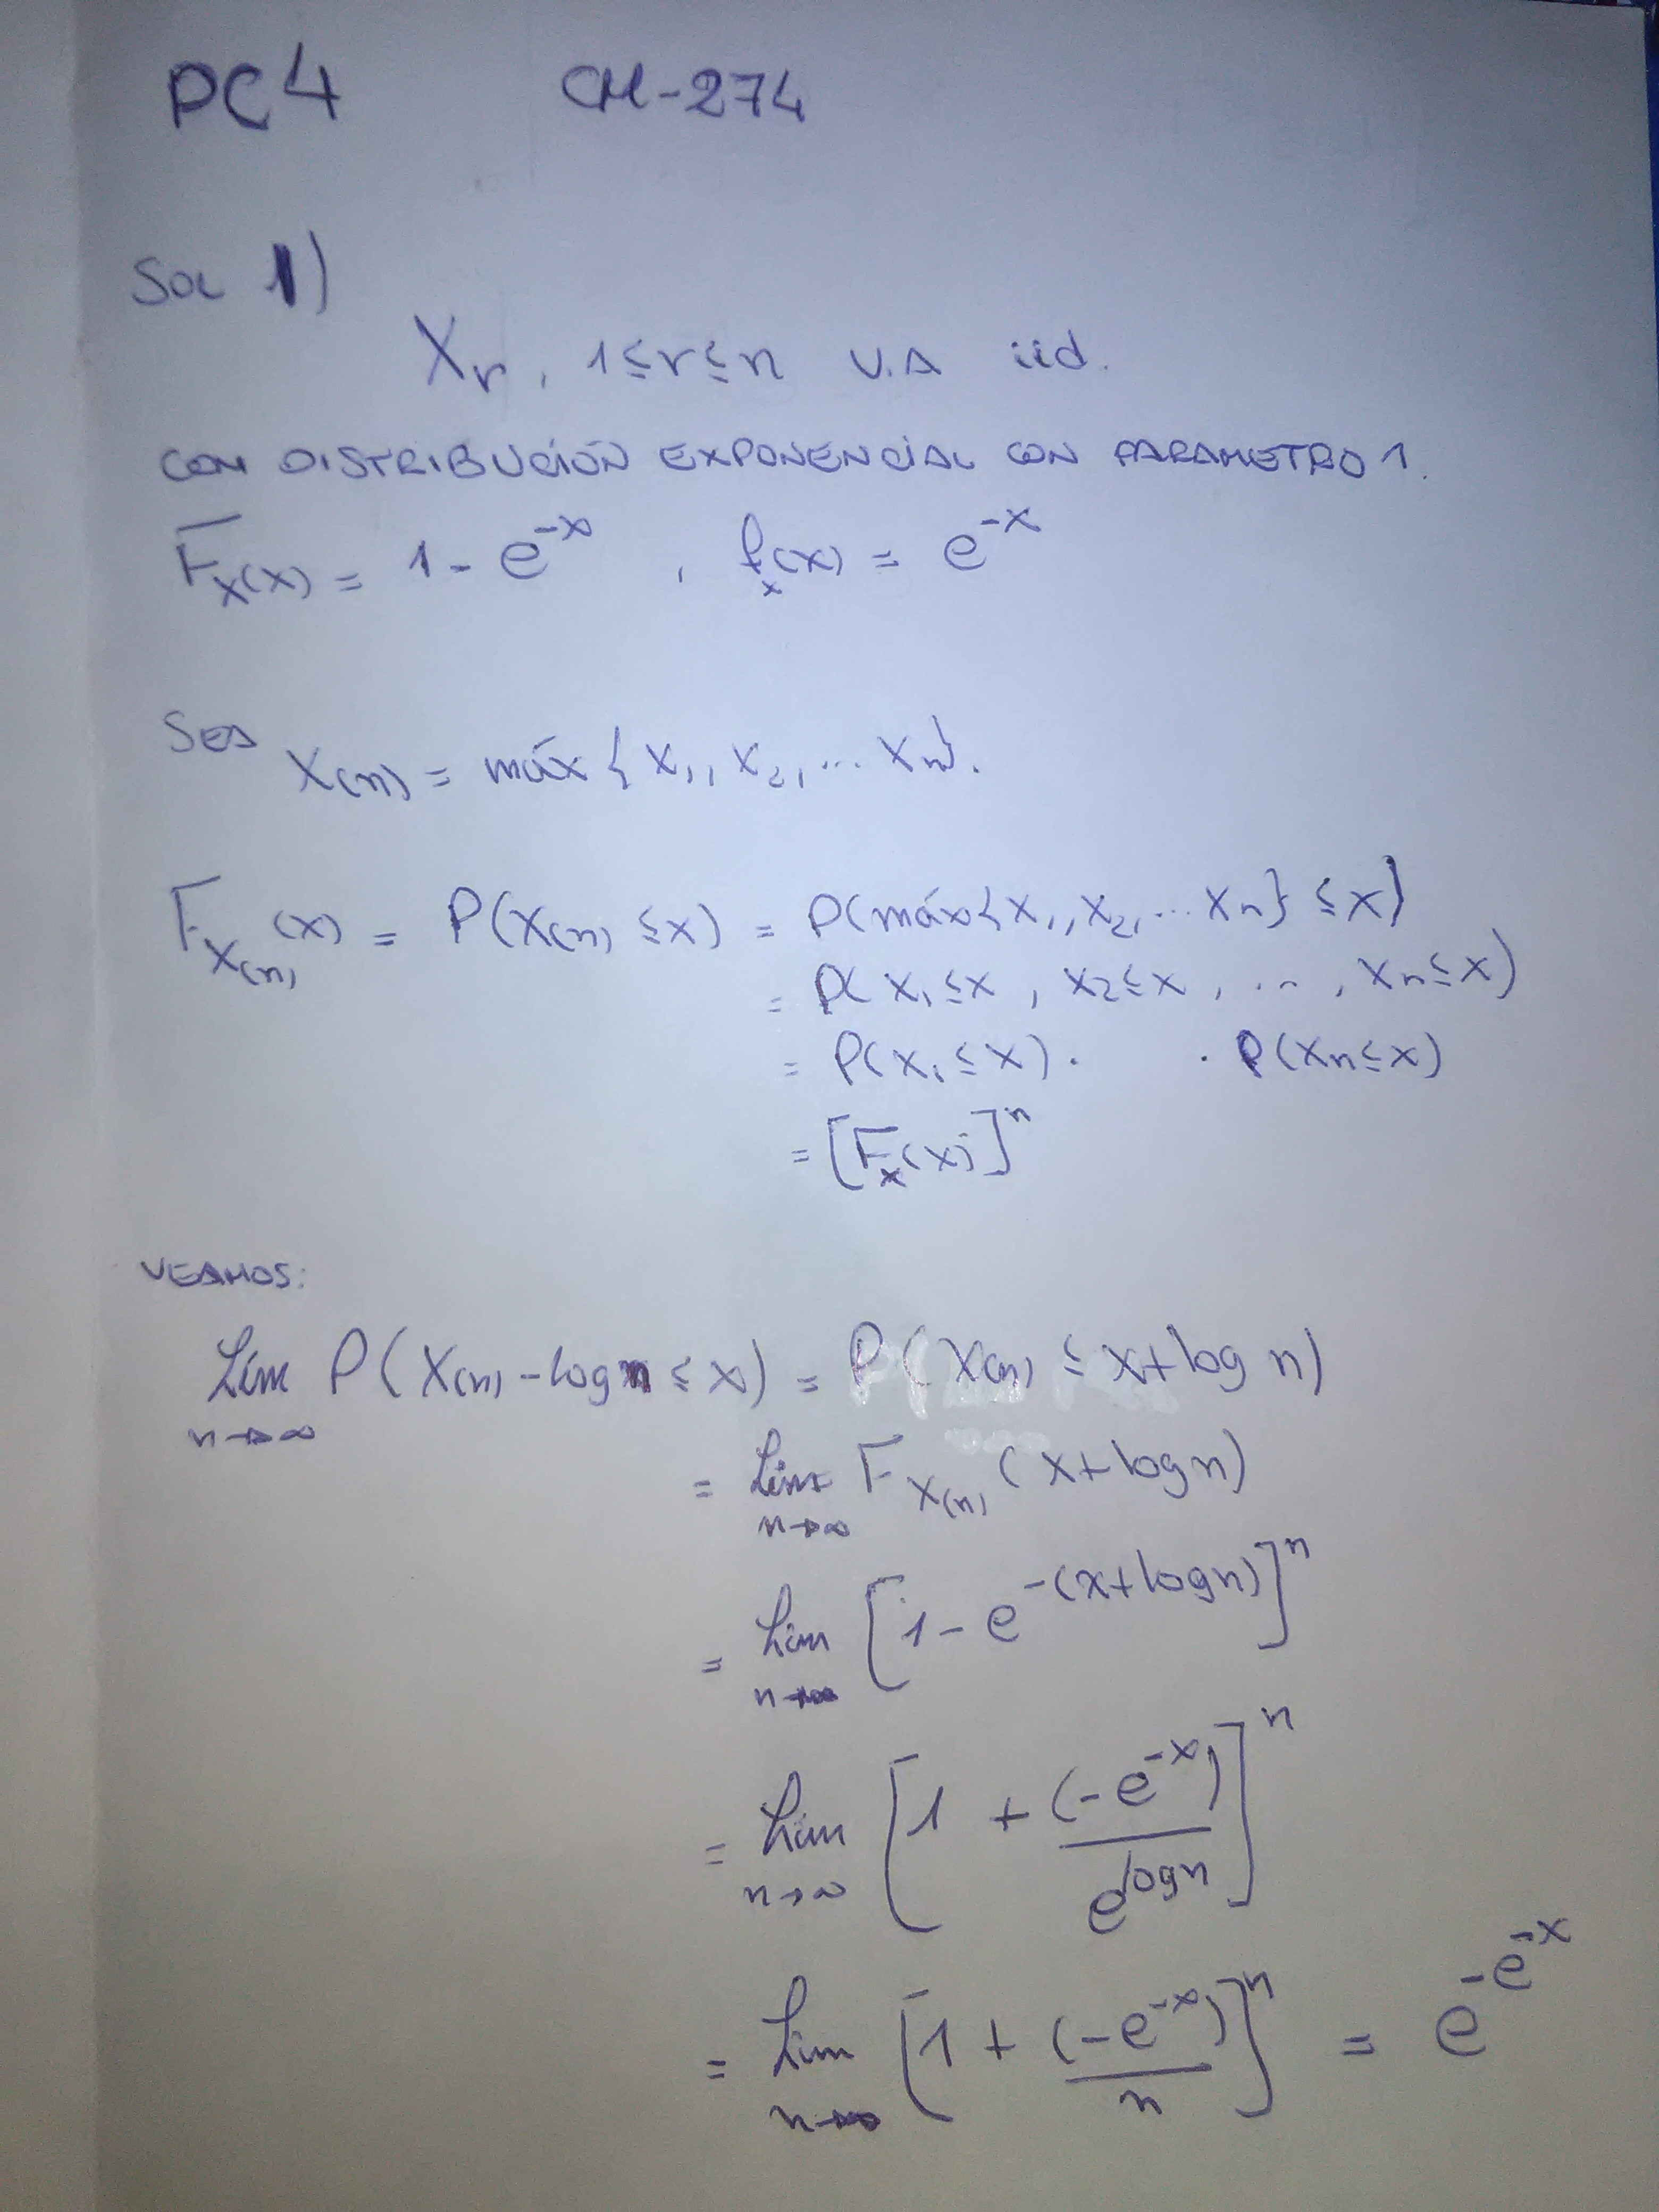 PC4 CM-274
Sol 1)
Xr, 1≤r≤n V.A iid.
CON DISTRIBUCIÓN EXPONENCIAL CON PARAMETRO 1.
F_X(x) = 1 - e^{-x} , f_x(x) = e^{-x}
SEA X(n) = máx { X₁, X₂, ... Xn}.
F_{X(n)}(x) = P(X(n) ≤x) = P(máx{X₁, X₂, ... Xn} ≤x)
= P( X₁≤x , X₂≤x , ... , Xn≤x)
= P(X₁≤x) · · P(Xn≤x)
= [F_x(x)]^n
VEAMOS:
Lim_{n→∞} P( X(n) - log n ≤ x) = P( X(n) ≤ x+log n)
= Lim_{n→∞} F_{X(n)} (x+log n)
= Lim_{n→∞} [1 - e^{-(x+log n)}]^n
= Lim_{n→∞} [1 + (-e^{-x})/e^{log n}]^n
= Lim_{n→∞} [1 + (-e^{-x})/n]^n = e^{-e^{-x}}